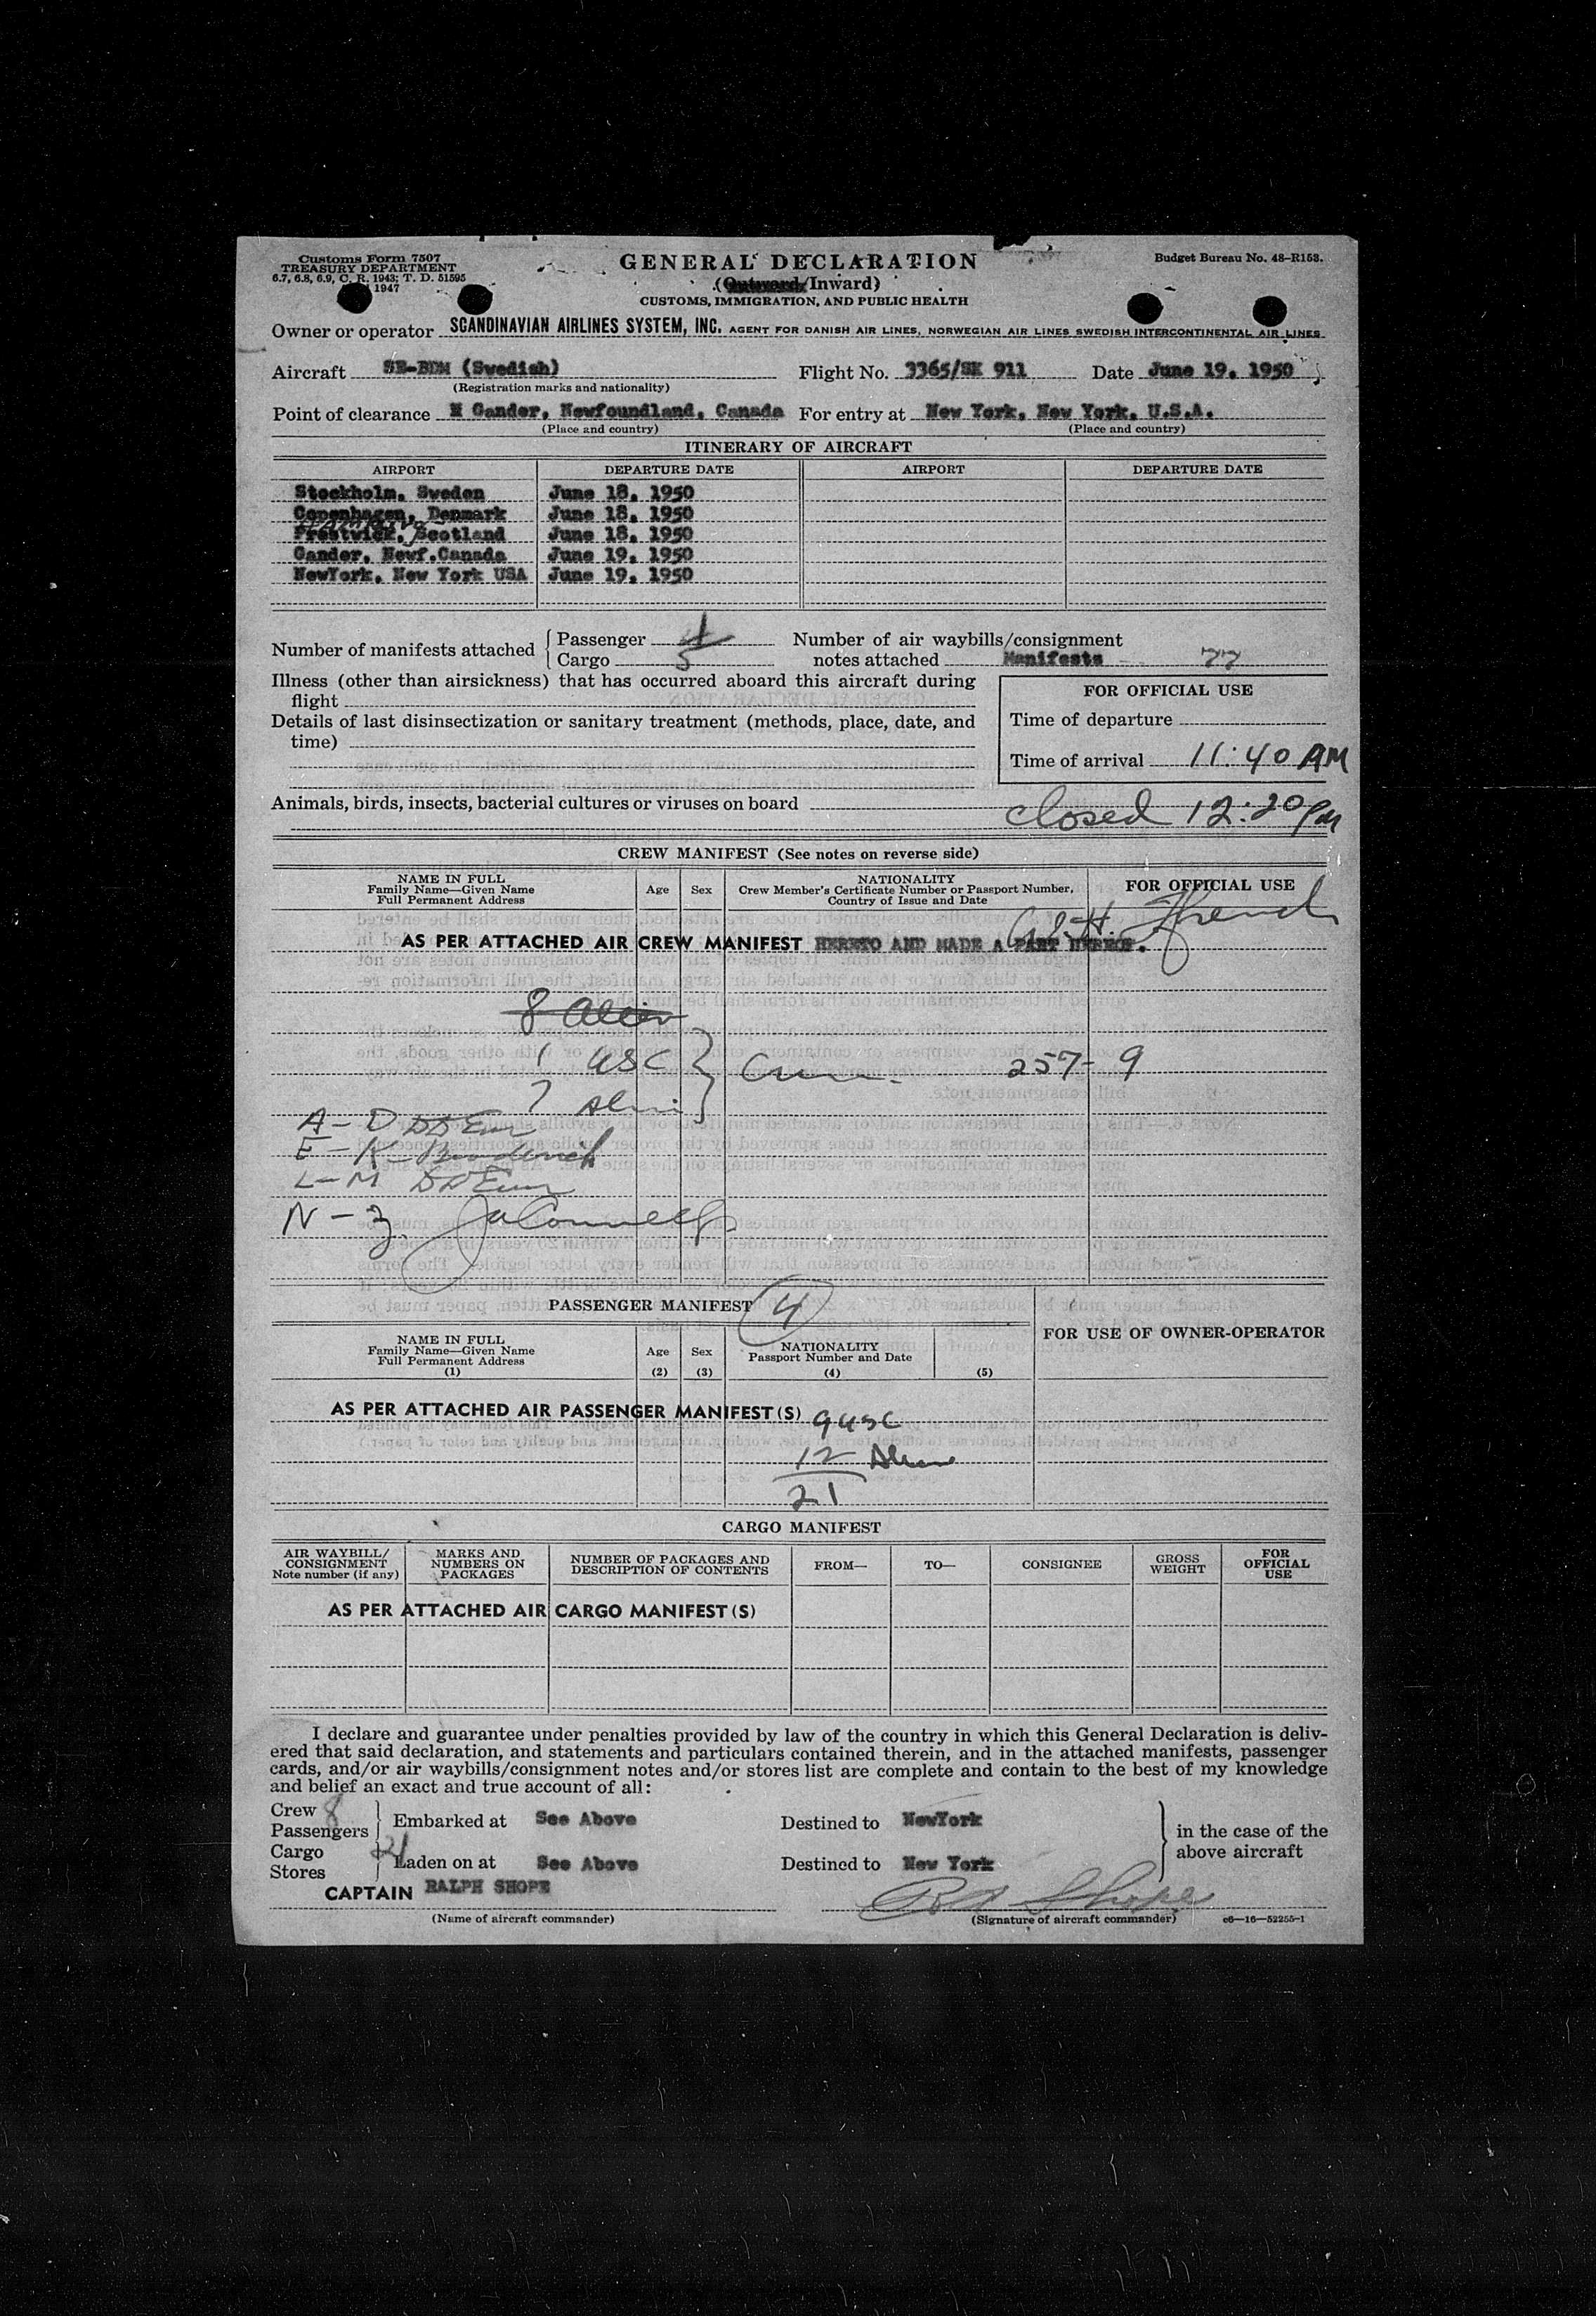 Customs Form 7507
TREASURY DEPARTMENT
6.7, 6.8, 6.9, C. R. 1943; T. D. 51595
1947
GENERAL DECLARATION
(Outward/Inward)
CUSTOMS, IMMIGRATION, AND PUBLIC HEALTH
Budget Bureau No. 48-R153.
Owner or operator SCANDINAVIAN AIRLINES SYSTEM, INC. AGENT FOR DANISH AIR LINES, NORWEGIAN AIR LINES SWEDISH INTERCONTINENTAL AIR LINES
Aircraft SE-BDM (Swedish) Flight No. 3365/SK 911 Date June 19, 1950
(Registration marks and nationality)
Point of clearance Gander, Newfoundland, Canada For entry at New York, New York, U.S.A.
(Place and country) (Place and country)
ITINERARY OF AIRCRAFT
AIRPORT DEPARTURE DATE AIRPORT DEPARTURE DATE
Stockholm, Sweden June 18, 1950
Copenhagen, Denmark June 18, 1950
Prestwick, Scotland June 18, 1950
Gander, Newf.Canada June 19, 1950
NewYork, New York USA June 19, 1950
Number of manifests attached { Passenger 1 Number of air waybills/consignment
Cargo 5 notes attached Manifests 77
Illness (other than airsickness) that has occurred aboard this aircraft during
flight
FOR OFFICIAL USE
Details of last disinsectization or sanitary treatment (methods, place, date, and
time)
Time of departure
Time of arrival 11:40 AM
Animals, birds, insects, bacterial cultures or viruses on board
closed 12:20 PM
CREW MANIFEST (See notes on reverse side)
NAME IN FULL
Family Name—Given Name
Full Permanent Address
Age Sex
NATIONALITY
Crew Member's Certificate Number or Passport Number,
Country of Issue and Date
FOR OFFICIAL USE
French
AS PER ATTACHED AIR CREW MANIFEST HERETO AND MADE A PART HEREOF.
8 Alien
1 USC
7 Alien } 257-9
A - D
E - K Broderick
L - M
N - Z. JA Connell
PASSENGER MANIFEST 4
NAME IN FULL
Family Name—Given Name
Full Permanent Address
(1)
Age
(2)
Sex
(3)
NATIONALITY
Passport Number and Date
(4) (5)
FOR USE OF OWNER-OPERATOR
AS PER ATTACHED AIR PASSENGER MANIFEST(S) 9 USC
12 Alien
21
CARGO MANIFEST
AIR WAYBILL/
CONSIGNMENT
Note number (if any)
MARKS AND
NUMBERS ON
PACKAGES
NUMBER OF PACKAGES AND
DESCRIPTION OF CONTENTS
FROM— TO— CONSIGNEE
GROSS
WEIGHT
FOR
OFFICIAL
USE
AS PER ATTACHED AIR CARGO MANIFEST(S)
I declare and guarantee under penalties provided by law of the country in which this General Declaration is deliv-
ered that said declaration, and statements and particulars contained therein, and in the attached manifests, passenger
cards, and/or air waybills/consignment notes and/or stores list are complete and contain to the best of my knowledge
and belief an exact and true account of all:
Crew 8
Passengers 21
Embarked at See Above Destined to NewYork
in the case of the
above aircraft
Cargo
Stores
Laden on at See Above Destined to New York
CAPTAIN RALPH SHOPE
(Name of aircraft commander)
Shope
(Signature of aircraft commander) c6—16—52255-1